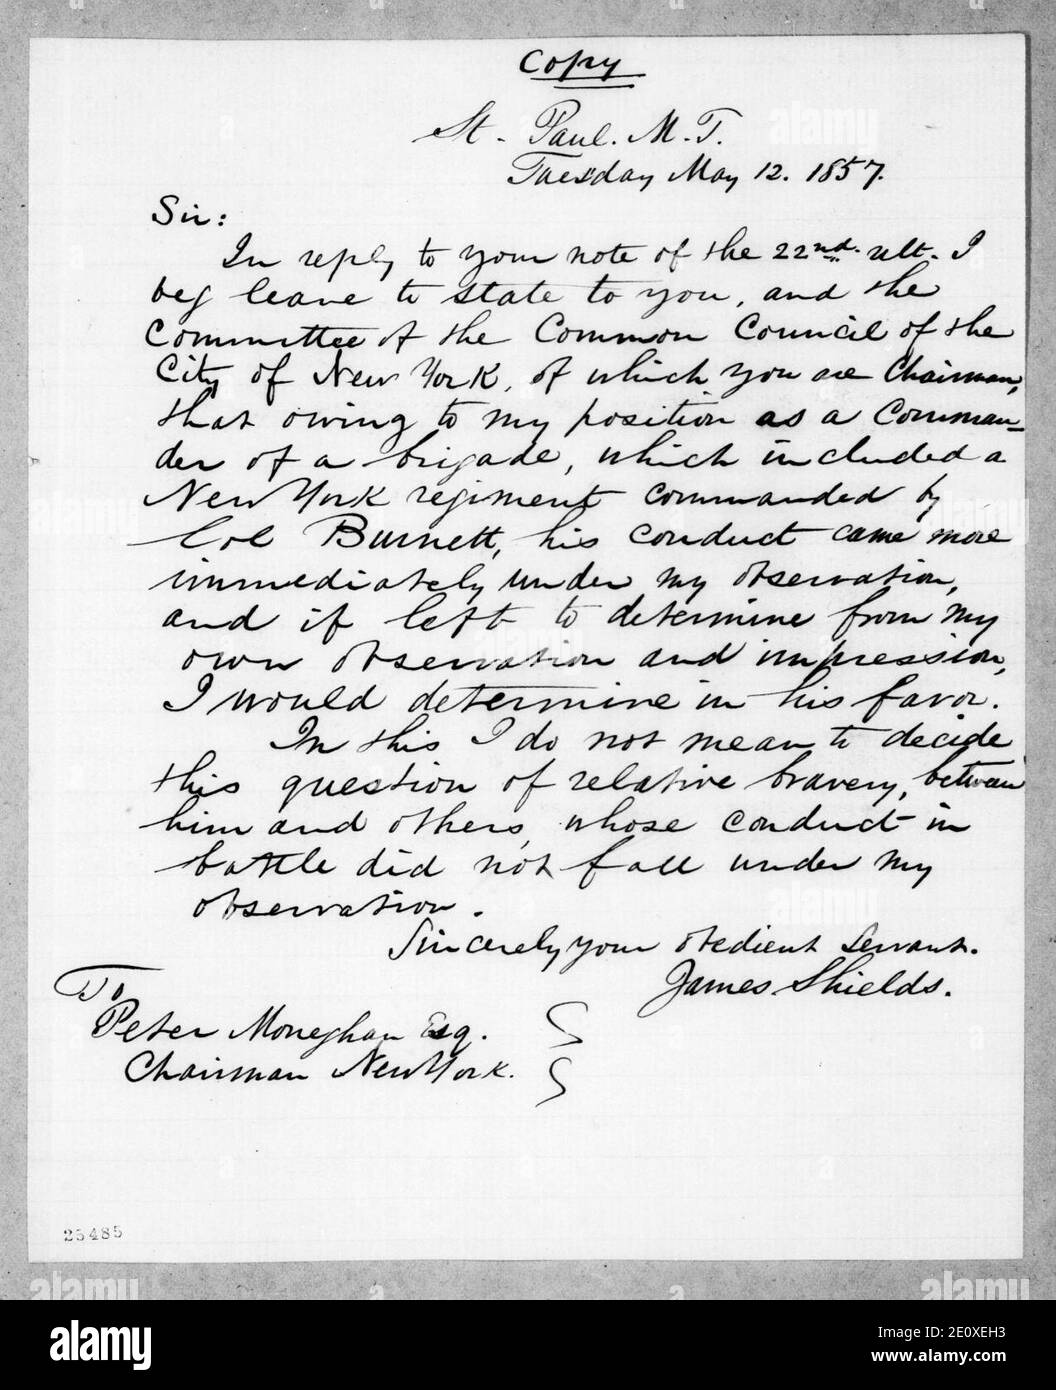 Copy
St. Paul. M. T.
Tuesday May 12. 1857.
Sir:
In reply to your note of the 22nd. ult. I
beg leave to state to you, and the
Committee of the Common Council of the
City of New York, of which you are Chairman,
that owing to my position as a Comman-
der of a brigade, which included a
New York regiment commanded by
Col Burnett, his conduct came more
immediately under my observation,
and if left to determine from my
own observation and impression,
I would determine in his favor.
In this I do not mean to decide
this question of relative bravery, between
him and others, whose conduct in
battle did not fall under my
observation.
Sincerely your obedient servant.
James Shields.
To
Peter Moneghan Esq.
Chairman New York.
25485
alamy
Image ID: 2E0XEH3
www.alamy.com